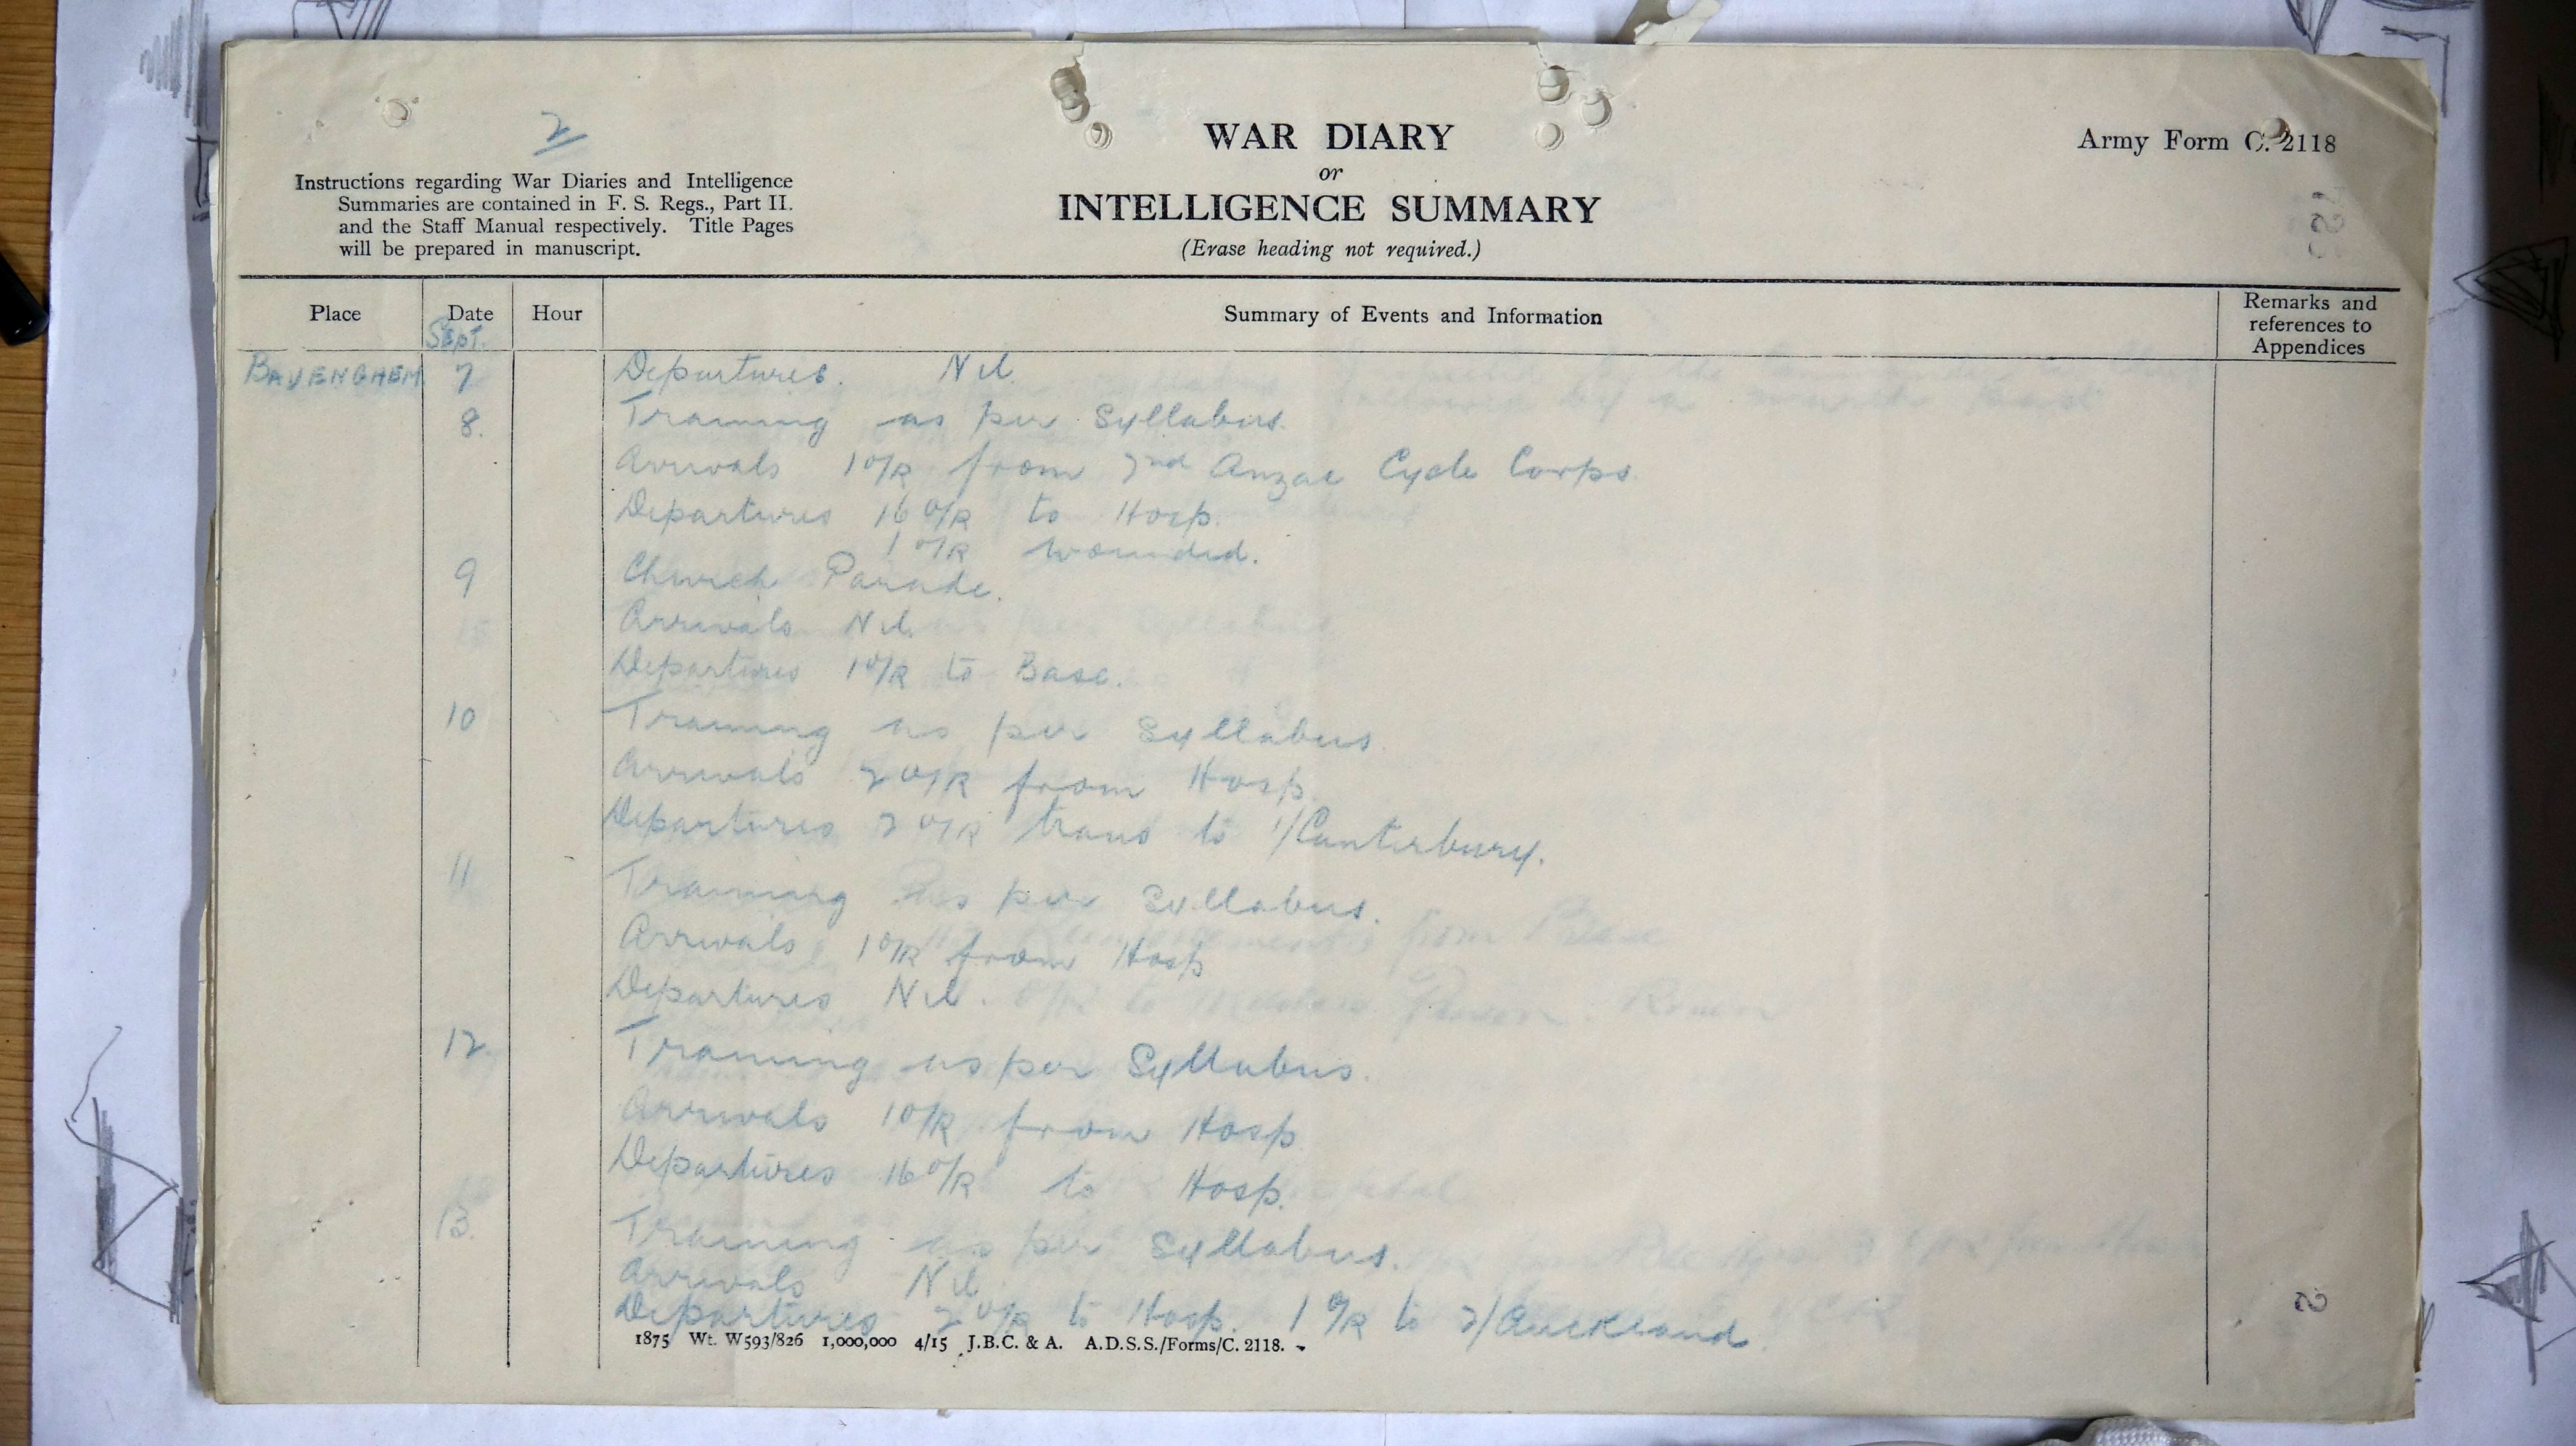 2
WAR DIARY
or
INTELLIGENCE SUMMARY
(Erase heading not required.)
Army Form C. 2118
Instructions regarding War Diaries and Intelligence
Summaries are contained in F. S. Regs., Part II.
and the Staff Manual respectively. Title Pages
will be prepared in manuscript.
Place Date Hour Summary of Events and Information Remarks and references to Appendices
Sept.
BAVENGHEM 7 Departures. Nil.
8. Training as per Syllabus.
Arrivals 1 O/R from 2nd Anzac Cycle Corps.
Departures 16 O/R to Hosp.
1 O/R wounded.
9 Church Parade.
Arrivals Nil.
Departures 1 O/R to Base.
10 Training as per Syllabus.
Arrivals 2 O/R from Hosp.
Departures 2 O/R trans to 1/Canterbury.
11 Training as per Syllabus.
Arrivals 1 O/R from Hosp
Departures Nil.
12. Training as per Syllabus.
Arrivals 1 O/R from Hosp
Departures 16 O/R to Hosp.
13. Training as per Syllabus.
Arrivals Nil.
Departures 2 O/R to Hosp. 1 O/R to 2/Auckland.
1875 Wt. W593/826 1,000,000 4/15 J.B.C. & A. A.D.S.S./Forms/C. 2118.